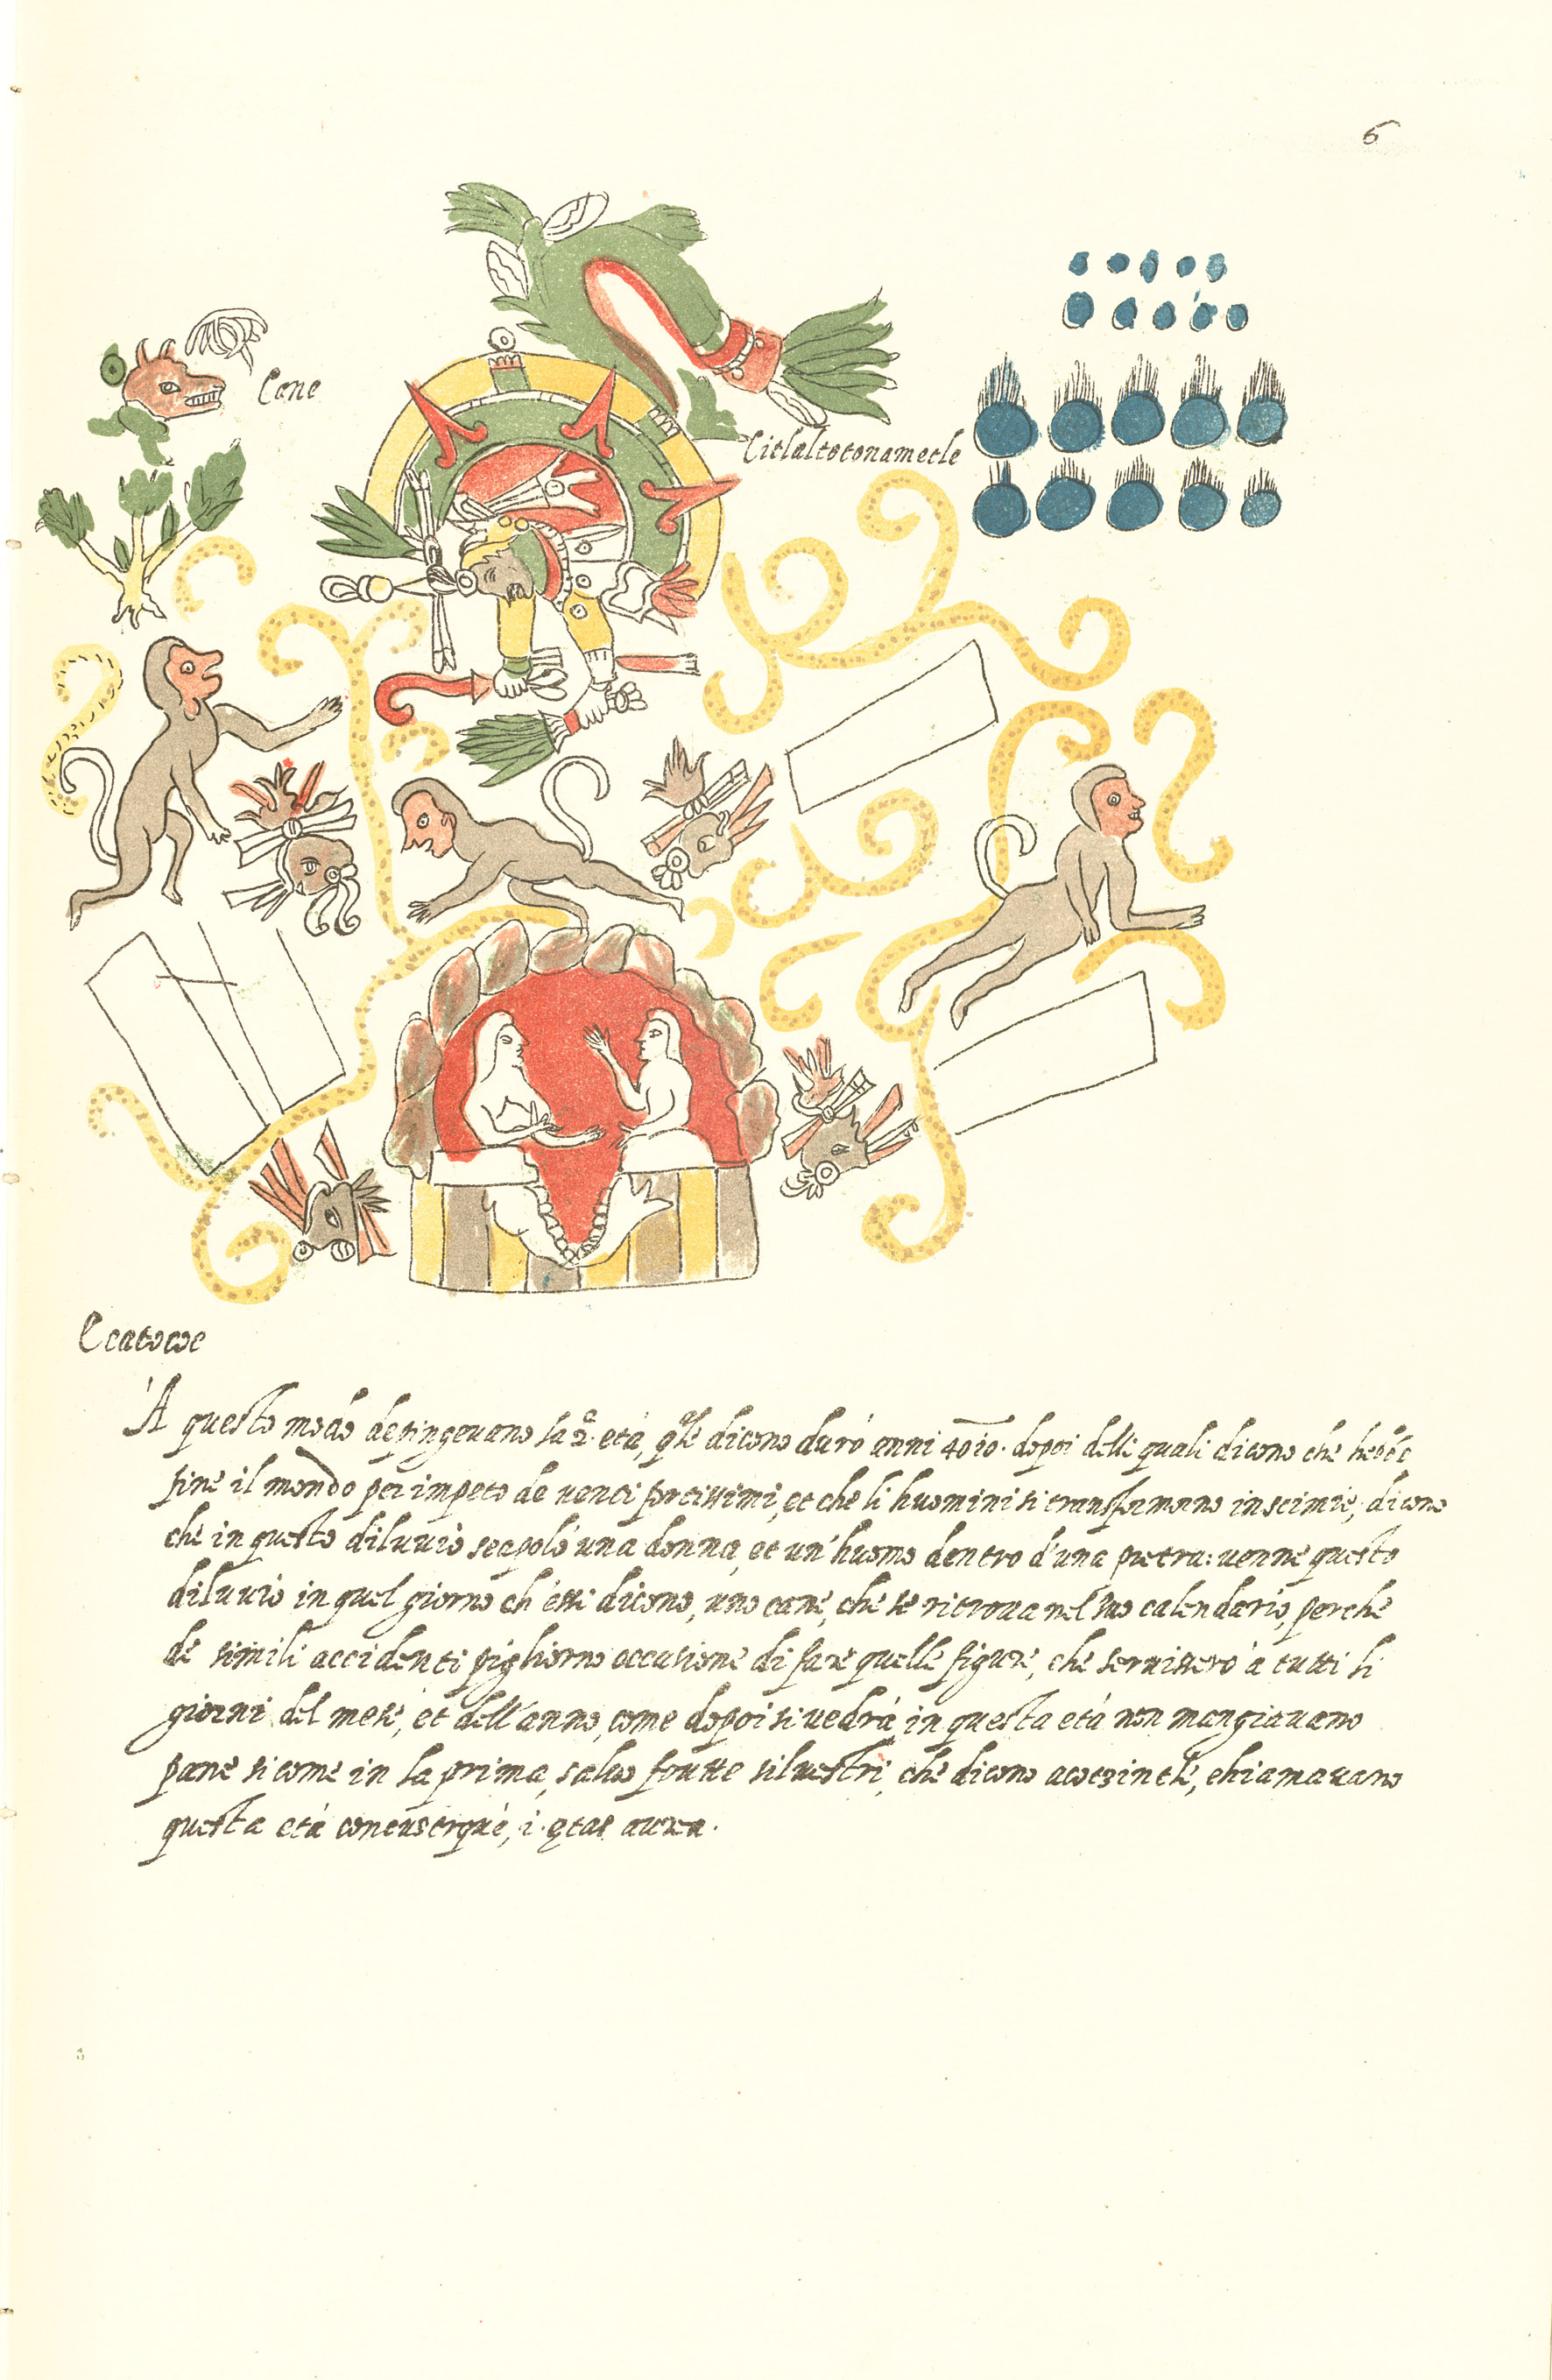 6
Cane
Citlaltotonametle
Ecatocoe
A questo modo depingevano la 2.ª età, q̃le dicono durò anni 4010. dopoi delli quali dicono che hebbe
fine il mondo per impeto de venti fortissimi, et che li huomini si transformorno in scimie, dicono
che in questo diluvio scapolò una donna, et un'huomo dentro d'una pietra: venne questo
diluvio in quel giorno ch'essi dicono, uno cane, che se ritrova nel suo calendario, perche
de simili accidenti pigliorno occasione di fare quelle figure, che servissero à tutti li
giorni del mese, et dell'anno, come dopoi si vedrà in questa età non mangiavano
pane si come in la prima, salvo frutte silvestri, che dicono acotzintli, chiamavano
questa età i. ętas aurea.